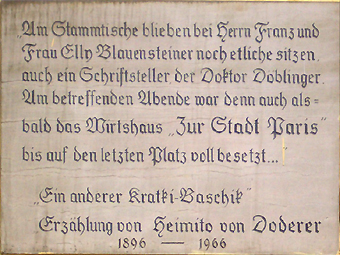 „Am Stammtische blieben bei Herrn Franz und
Frau Elly Blauensteiner noch etliche sitzen,
auch ein Schriftsteller der Doktor Döblinger.
Am betreffenden Abende war denn auch als=
bald das Wirtshaus „Zur Stadt Paris“
bis auf den letzten Platz voll besetzt...“
„Ein anderer Kratki-Baschik“
Erzählung von Heimito von Doderer
1896 — 1966